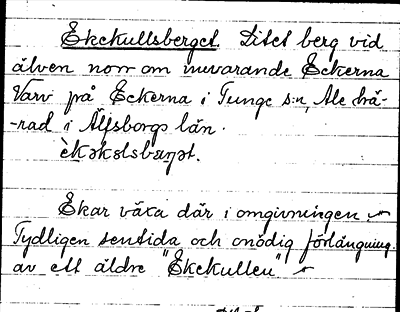 Ekekullsberget. Litet berg vid
älven norr om nuvarande Eckerna
Varv på Eckerna i Tunge s:n, Ale hä-
-rad i Älfsborgs län.
Ekar växa där i omgivningen
Tydligen sentida och onödig förlängning
av ett äldre "Ekekullen"